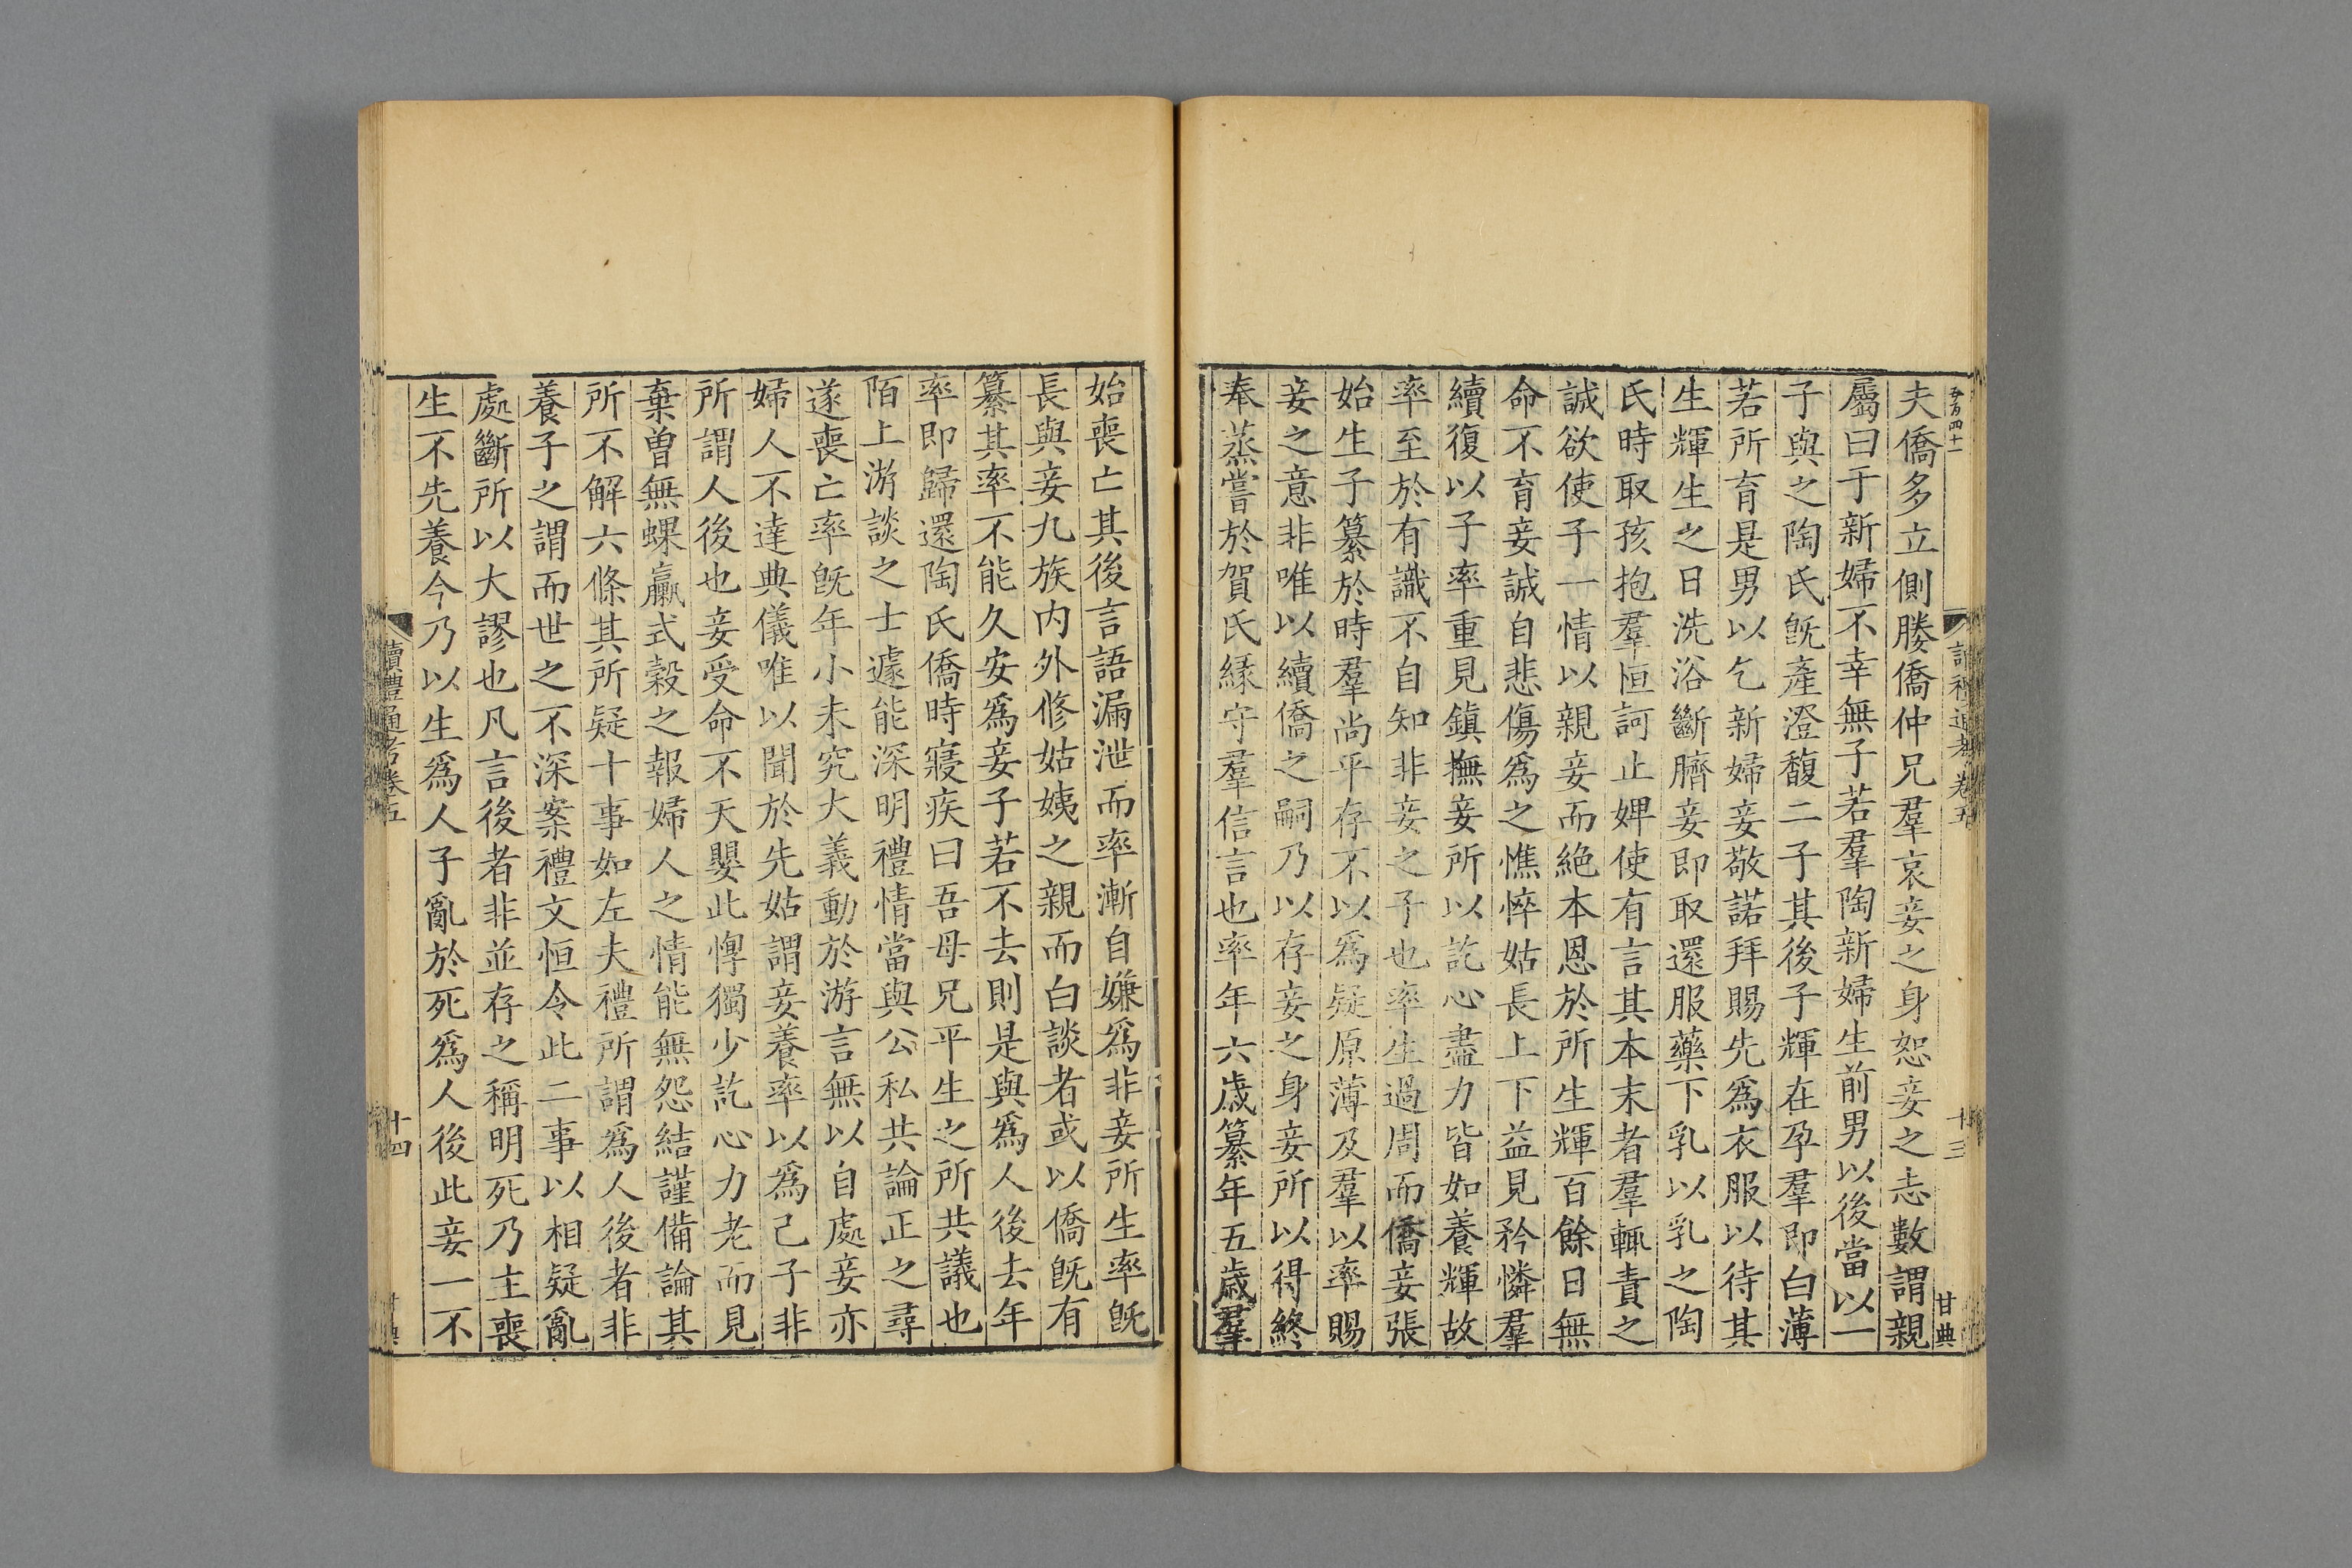 夫僑多立側媵僑仲兄羣哀妾之身恕妾之志數謂親
屬曰于新婦不幸無子若羣陶新婦生前男以後當以一
子與之陶氏旣產澄馥二子其後子輝在孕羣卽白薄
若所育是男以乞新婦妾敬諾拜賜先爲衣服以待其
生輝生之日洗浴斷臍妾卽取還服藥下乳以乳之陶
氏時取孩抱羣恒訶止婢使有言其本末者羣輒責之
誠欲使子一情以親妾而絕本恩於所生輝百餘日無
命不育妾誠自悲傷爲之憔悴姑長上下益見矜憐羣
續復以子率重見鎮撫妾所以訖心盡力皆如養輝故
率至於有識不自知非妾之子也率生過周而僑妾張
始生子纂於時羣尚平存不以爲疑原薄及羣以率賜
妾之意非唯以續僑之嗣乃以存妾之身妾所以得終
奉蒸嘗於賀氏緣守羣信言也率年六歲纂年五歲羣
始喪亡其後言語漏泄而率漸自嫌爲非妾所生率旣
長與妾九族內外修姑姨之親而白談者或以僑旣有
纂其率不能久安爲妾子若不去則是與爲人後去年
率卽歸還陶氏僑時寢疾曰吾母兄平生之所共議也
陌上游談之士遽能深明禮情當與公私共論正之尋
遂喪亡率旣年小未究大義動於游言無以自處妾亦
婦人不達典儀唯以聞於先姑謂妾養率以爲己子非
所謂人後也妾受命不天嬰此惸獨少訖心力老而見
棄曾無蜾蠃式穀之報婦人之情能無怨結謹備論其
所不解六條其所疑十事如左夫禮所謂爲人後者非
養子之謂而世之不深案禮文恒令此二事以相疑亂
處斷所以大謬也凡言後者非並存之稱明死乃主喪
生不先養今乃以生爲人子亂於死爲人後此妾一不
讀禮通考卷五
十三
甘典
讀禮通考卷五
十四